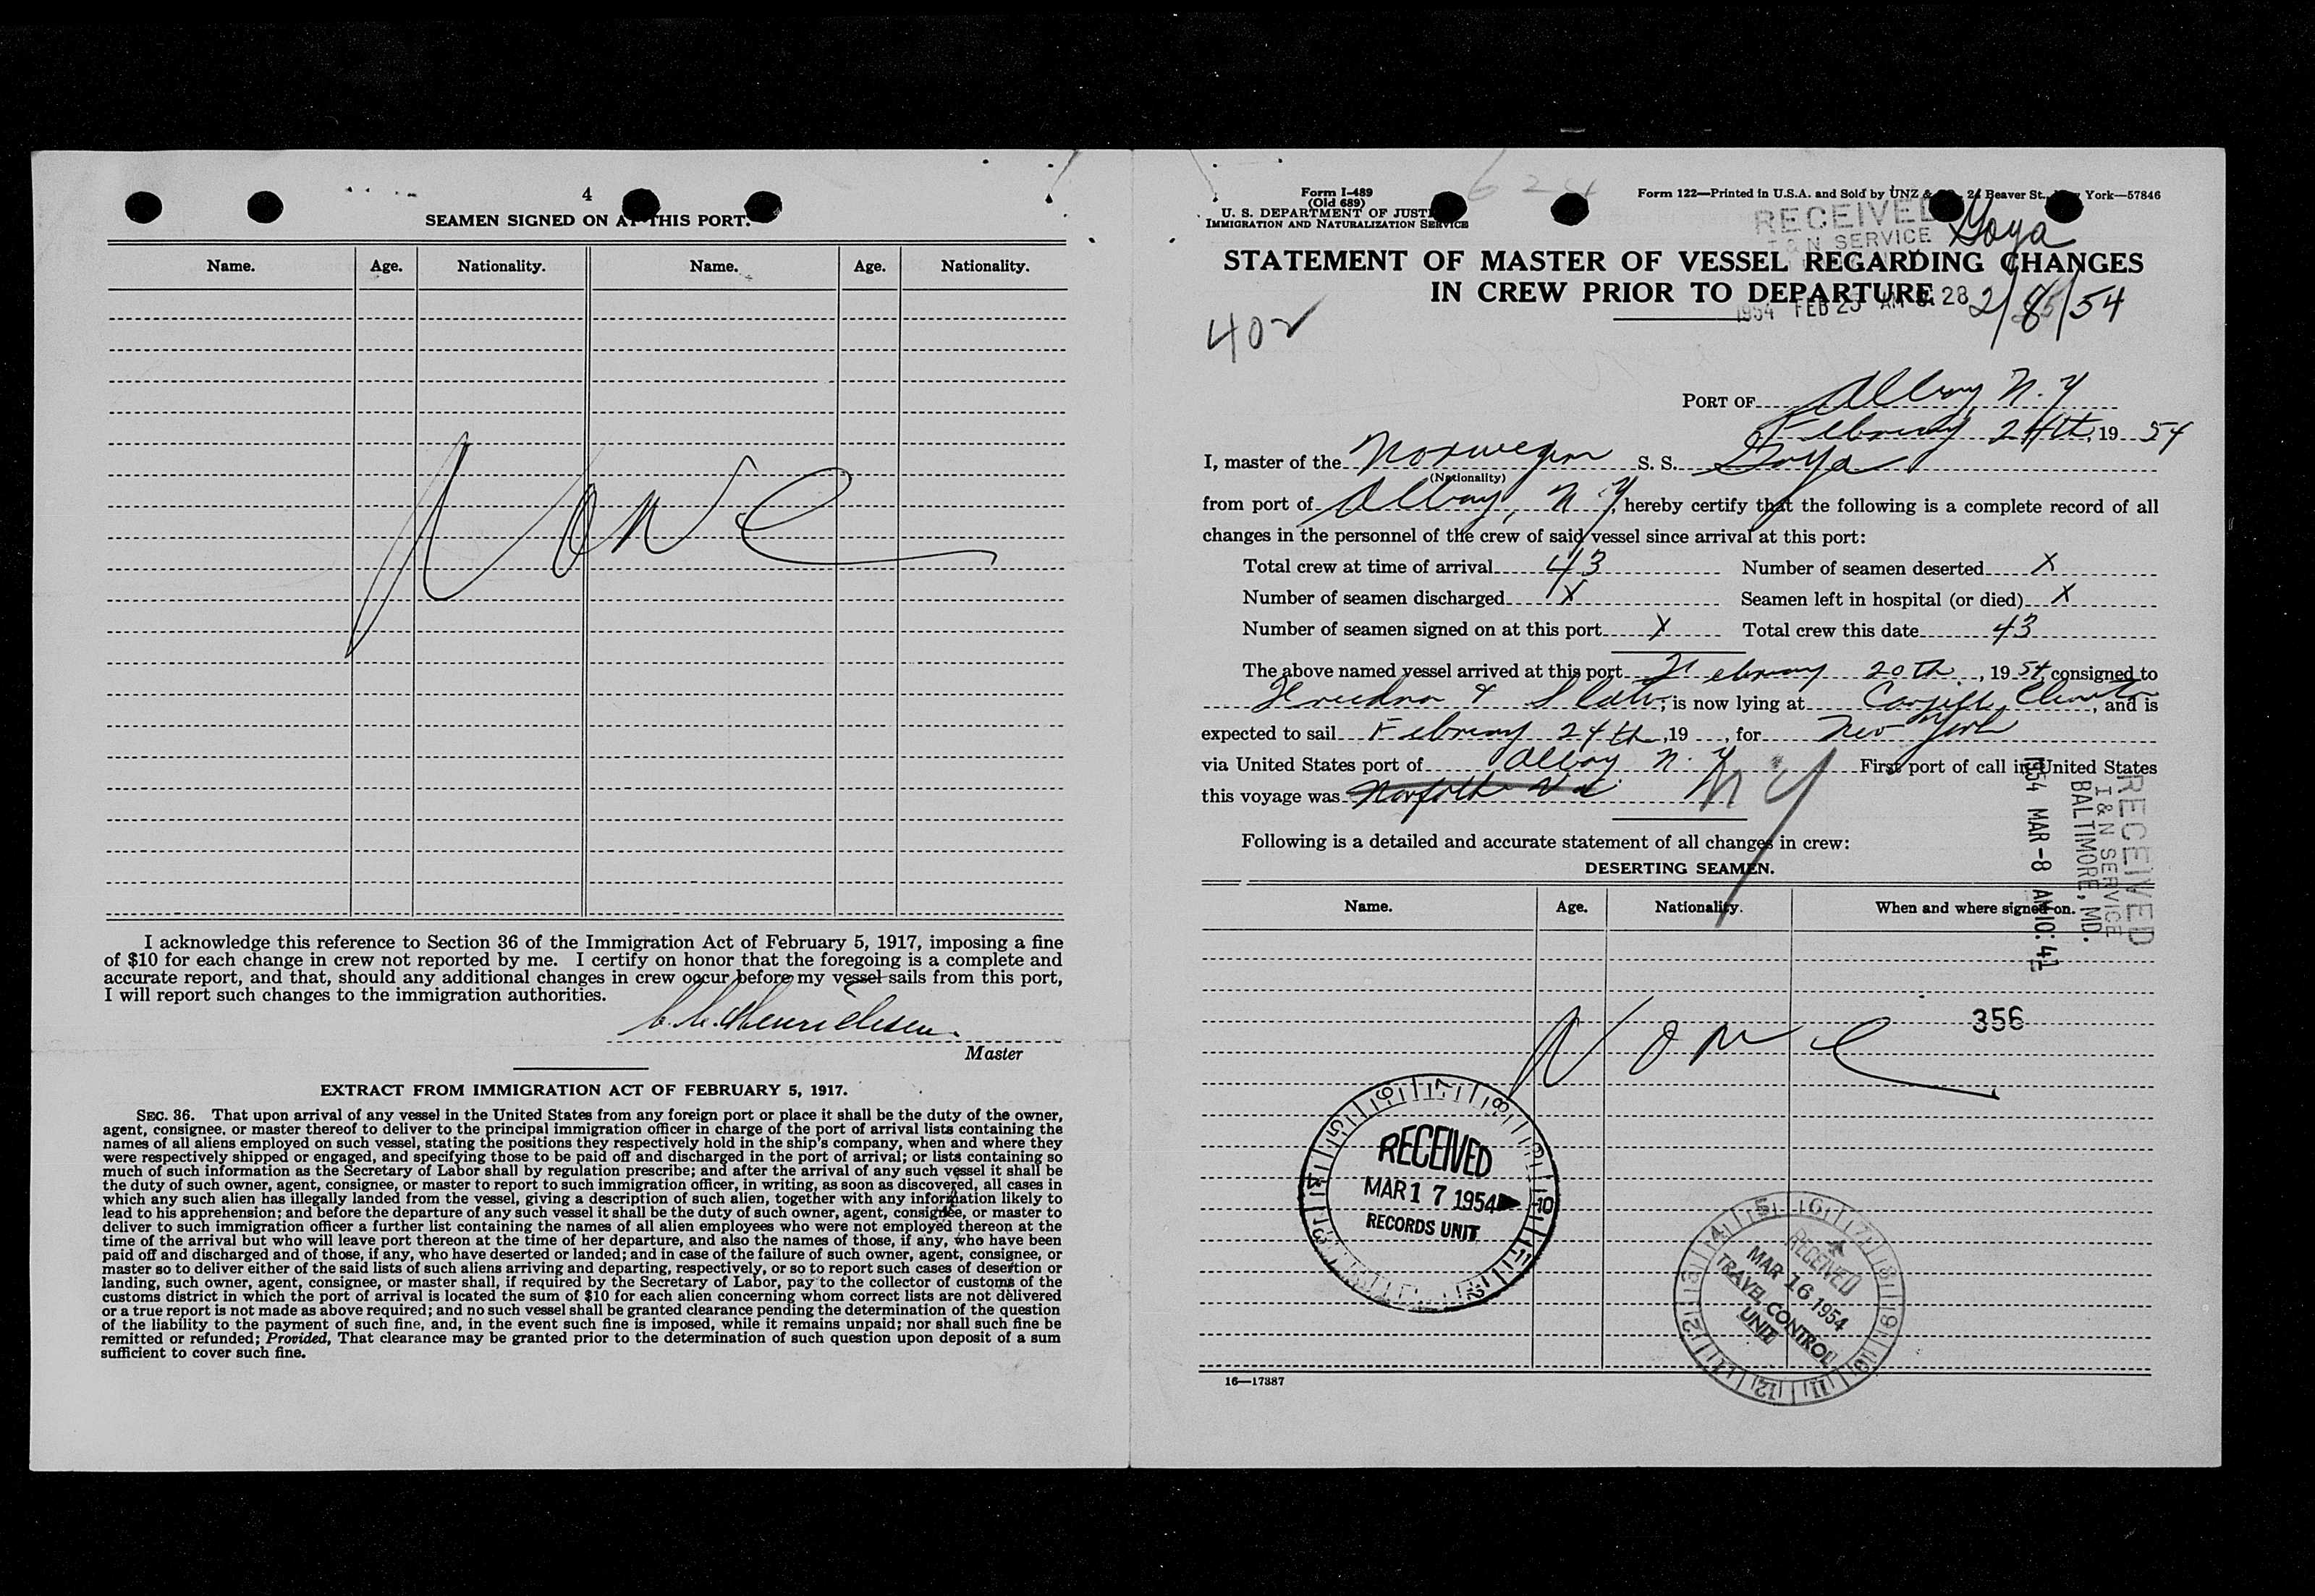 4
SEAMEN SIGNED ON AT THIS PORT.
Name. Age. Nationality. Name. Age. Nationality.
None
I acknowledge this reference to Section 36 of the Immigration Act of February 5, 1917, imposing a fine
of $10 for each change in crew not reported by me. I certify on honor that the foregoing is a complete and
accurate report, and that, should any additional changes in crew occur before my vessel sails from this port,
I will report such changes to the immigration authorities.
Henrichsen.
Master
EXTRACT FROM IMMIGRATION ACT OF FEBRUARY 5, 1917.
SEC. 36. That upon arrival of any vessel in the United States from any foreign port or place it shall be the duty of the owner,
agent, consignee, or master thereof to deliver to the principal immigration officer in charge of the port of arrival lists containing the
names of all aliens employed on such vessel, stating the positions they respectively hold in the ship's company, when and where they
were respectively shipped or engaged, and specifying those to be paid off and discharged in the port of arrival; or lists containing so
much of such information as the Secretary of Labor shall by regulation prescribe; and after the arrival of any such vessel it shall be
the duty of such owner, agent, consignee, or master to report to such immigration officer, in writing, as soon as discovered, all cases in
which any such alien has illegally landed from the vessel, giving a description of such alien, together with any information likely to
lead to his apprehension; and before the departure of any such vessel it shall be the duty of such owner, agent, consignee, or master to
deliver to such immigration officer a further list containing the names of all alien employees who were not employed thereon at the
time of the arrival but who will leave port thereon at the time of her departure, and also the names of those, if any, who have been
paid off and discharged and of those, if any, who have deserted or landed; and in case of the failure of such owner, agent, consignee, or
master so to deliver either of the said lists of such aliens arriving and departing, respectively, or so to report such cases of desertion or
landing, such owner, agent, consignee, or master shall, if required by the Secretary of Labor, pay to the collector of customs of the
customs district in which the port of arrival is located the sum of $10 for each alien concerning whom correct lists are not delivered
or a true report is not made as above required; and no such vessel shall be granted clearance pending the determination of the question
of the liability to the payment of such fine, and, in the event such fine is imposed, while it remains unpaid; nor shall such fine be
remitted or refunded; Provided, That clearance may be granted prior to the determination of such question upon deposit of a sum
sufficient to cover such fine.
Form I-489
(Old 689)
U. S. DEPARTMENT OF JUSTICE
IMMIGRATION AND NATURALIZATION SERVICE
Form 122—Printed in U.S.A. and Sold by UNZ & 24 Beaver St., York—57846
RECEIVED
I & N SERVICE
Goya
STATEMENT OF MASTER OF VESSEL REGARDING CHANGES
IN CREW PRIOR TO DEPARTURE
1954 FEB 25 AM 28
2/8/54
402
PORT OF Albany N.Y
February 24th, 19 54
I, master of the Norwegian S. S. Goya
(Nationality)
from port of Albany, N.Y, hereby certify that the following is a complete record of all
changes in the personnel of the crew of said vessel since arrival at this port:
Total crew at time of arrival 43 Number of seamen deserted X
Number of seamen discharged X Seamen left in hospital (or died) X
Number of seamen signed on at this port X Total crew this date 43
The above named vessel arrived at this port February 20th, 19 54 consigned to
& ; is now lying at Cargill, and is
expected to sail February 24th, 19 , for New York
via United States port of Albany N.Y First port of call in United States
this voyage was Norfolk Va NY
Following is a detailed and accurate statement of all changes in crew:
DESERTING SEAMEN.
Name. Age. Nationality. When and where signed on.
RECEIVED
I & N SERVICE
BALTIMORE, MD.
1954 MAR -8 AM 10:41
356
None
RECEIVED
MAR 17 1954
RECORDS UNIT
RECEIVED
MAR 16 1954
TRAVEL CONTROL
UNIT
16—17387